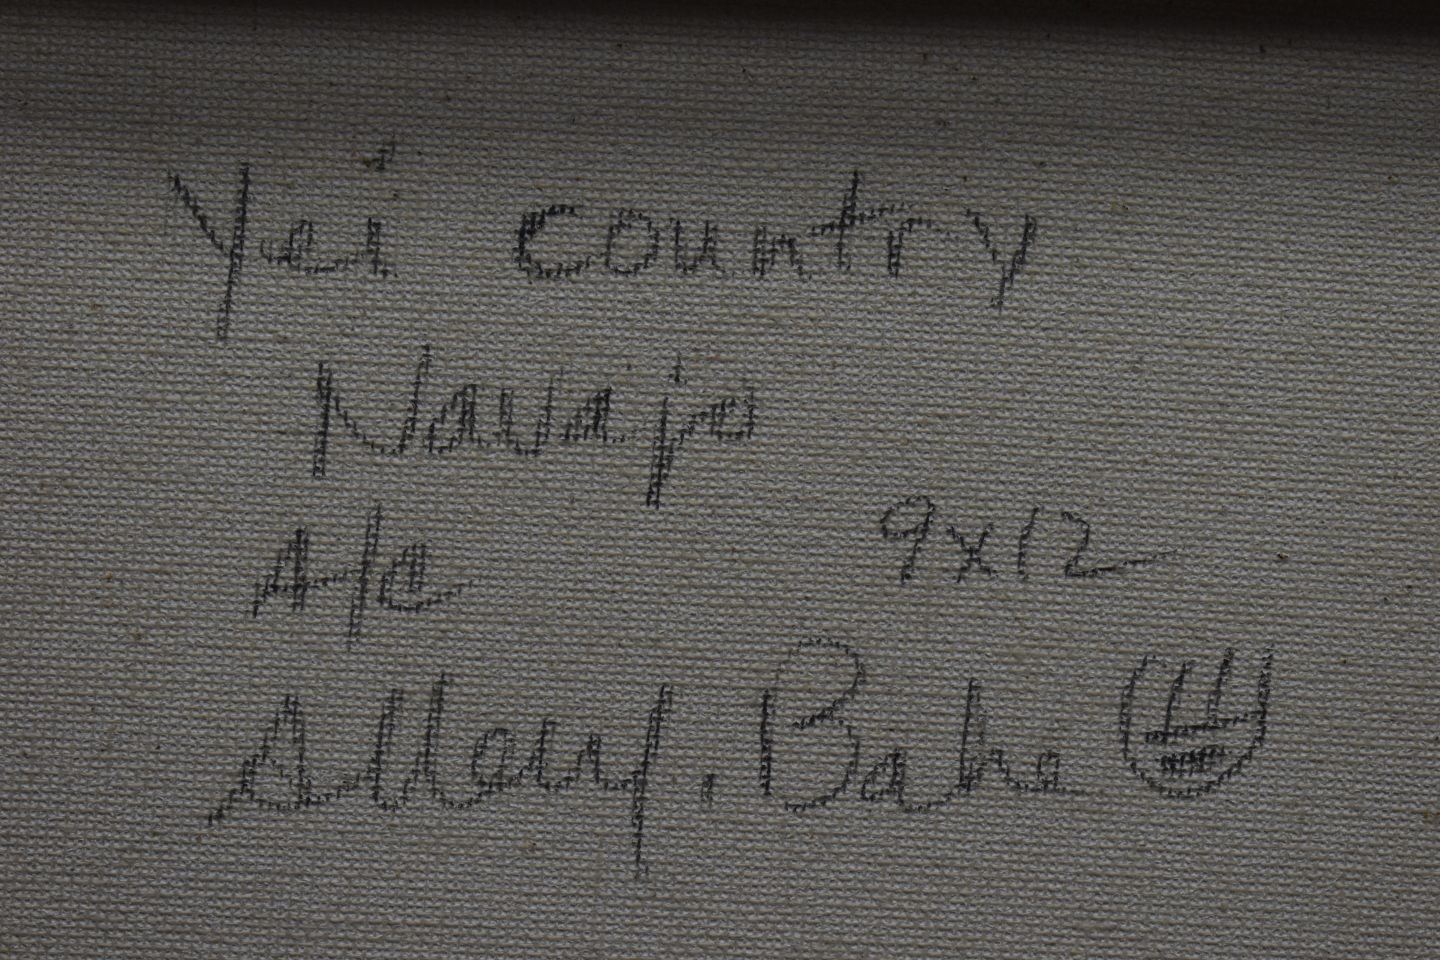 Yei Country
Navajo
A/C 9x12
Alloy. Baha